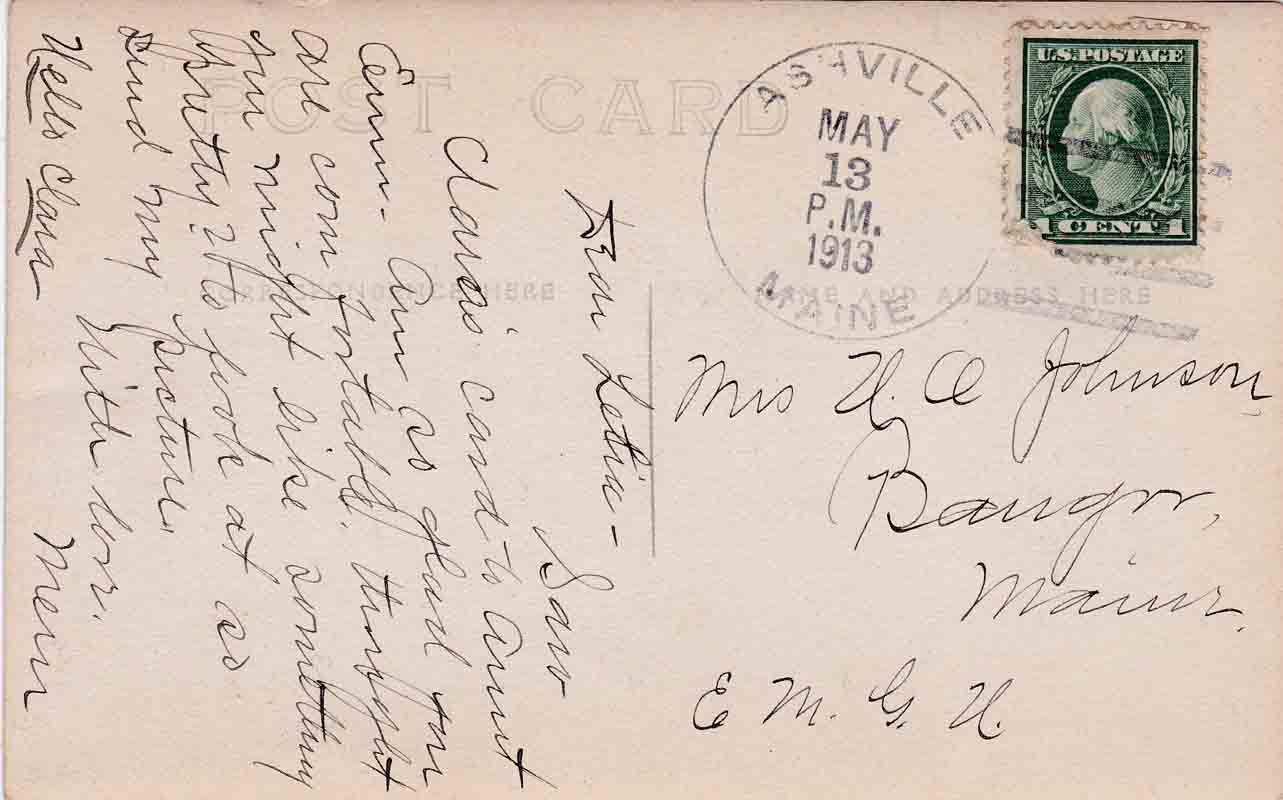 POST CARD
CORRESPONDENCE HERE
NAME AND ADDRESS HERE
ASHVILLE
MAY
13
P.M.
1913
MAINE
U.S. POSTAGE
1 CENT 1
Dear Letia -
Saw
Clara's card to Aunt
Emm - Am so glad you
are comfortable. thought
you might like something
pretty to look at so
send my picture.
With love.
Hello Clara
Mrs H. A Johnson,
Bangor,
Maine.
E M. G. H.